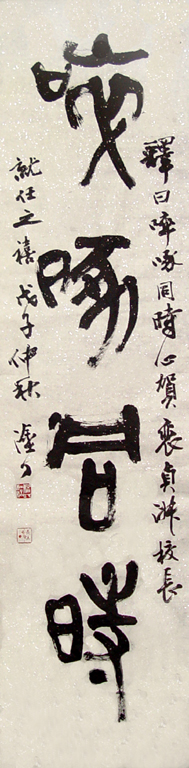 釋曰啐啄同時以賀裵貞 校長
啐啄同時
就任之禧 戊子仲秋